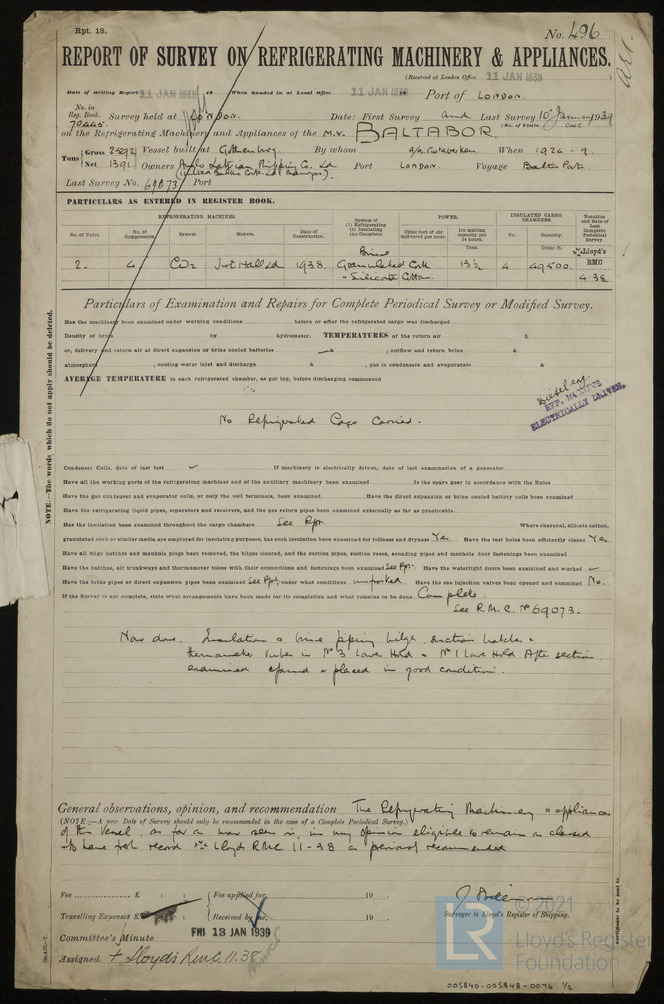 Rpt. 18.
No. 496
REPORT OF SURVEY ON REFRIGERATING MACHINERY & APPLIANCES.
(Received at London Office 11 JAN 1939 )
Date of writing Report 11 JAN 1939 19 When handed in at Local Office 11 JAN 1939 19 Port of LONDON.
No. in Reg. Book. Survey held at LONDON. Date: First Survey and Last Survey 10th January 1939
70445 (No. of Visits one )
on the Refrigerating Machinery and Appliances of the M.V. BALTABOR
Tons Gross 2592 Vessel built at Gothenburg. By whom A/B. Gotaverken. When 1926 - 9.
Net 1391 Owners Anglo Latvian Shipping Co. Ld Port LONDON. Voyage Baltic Ports.
(United Baltic Corp. Ld Managers).
Last Survey No. 69073 Port
PARTICULARS AS ENTERED IN REGISTER BOOK.
REFRIGERATING MACHINES. System of (1) Refrigerating (2) Insulating the Chambers POWER. INSULATED CARGO CHAMBERS. Notation and Date of Last Complete Periodical Survey.
No. of Units. No. of Compressors. System. Makers. Date of Construction. Cubic feet of air delivered per hour. Ice making capacity per 24 hours. No. Capacity.
Tons. Cubic ft. Lloyd's
Brine
2 4 CO2 J & E Hall Ld 1938 Granulated Cork 13½ 4 49500 RMC
- Silicate Cotton 4.38
Particulars of Examination and Repairs for Complete Periodical Survey or Modified Survey.
Has the machinery been examined under working conditions before or after the refrigerated cargo was discharged
Density of brine by hydrometer. TEMPERATURES of the return air &
or, delivery and return air at direct expansion or brine cooled batteries & , outflow and return brine &
atmosphere , cooling water inlet and discharge & , gas in condensers and evaporators &
AVERAGE TEMPERATURE in each refrigerated chamber, as per log, before discharging commenced
REF. MACHINES
ELECTRICALLY DRIVEN.
No Refrigerated Cargo Carried.
NOTE:—The words which do not apply should be deleted.
Condenser Coils, date of last test If machinery is electrically driven, date of last examination of a generator
Have all the working parts of the refrigerating machines and of the auxiliary machinery been examined Is the spare gear in accordance with the Rules
Have the gas condenser and evaporator coils, or only the coil terminals, been examined Have the direct expansion or brine cooled battery coils been examined
Have the refrigerating liquid pipes, separators and receivers, and the gas return pipes been examined externally as far as practicable
Has the insulation been examined throughout the cargo chambers See Rpt. Where charcoal, silicate cotton,
granulated cork or similar media are employed for insulating purposes, has such insulation been examined for fullness and dryness Yes. Have the test holes been efficiently closed Yes.
Have all bilge hatches and manhole plugs been removed, the bilges cleared, and the suction pipes, suction roses, sounding pipes and manhole door fastenings been examined
Have the hatches, air trunkways and thermometer tubes with their connections and fastenings been examined See Rpt. Have the watertight doors been examined and worked
Have the brine pipes or direct expansion pipes been examined See Rpt. under what conditions unfrosted. Have the sea injection valves been opened and examined No.
If the Survey is not complete, state what arrangements have been made for its completion and what remains to be done Complete.
See R.M.C. No 69073.
Now done. Insulation & brine piping bilge suction hatches &
thermometer tubes in No 3 Lower Hold & No 1 Lower Hold After section
examined & placed in good condition.
General observations, opinion, and recommendation The Refrigerating Machinery & appliances
(NOTE:—A new Date of Survey should only be recommended in the case of a Complete Periodical Survey.)
of this Vessel, as far as now seen is, in my opinion eligible to remain as classed
to have fresh record Lloyd's RMC 11-38 as previously recommended
Fee £ : : Fee applied for, 19
Travelling Expenses £ : : Received by me, 19
Surveyor to Lloyd's Register of Shipping.
FRI 13 JAN 1939
Committee's Minute
Assigned + Lloyd's RMC. 11.38
© 2021
Lloyd's Register
Foundation
LR
005840-005848-0076 1/2